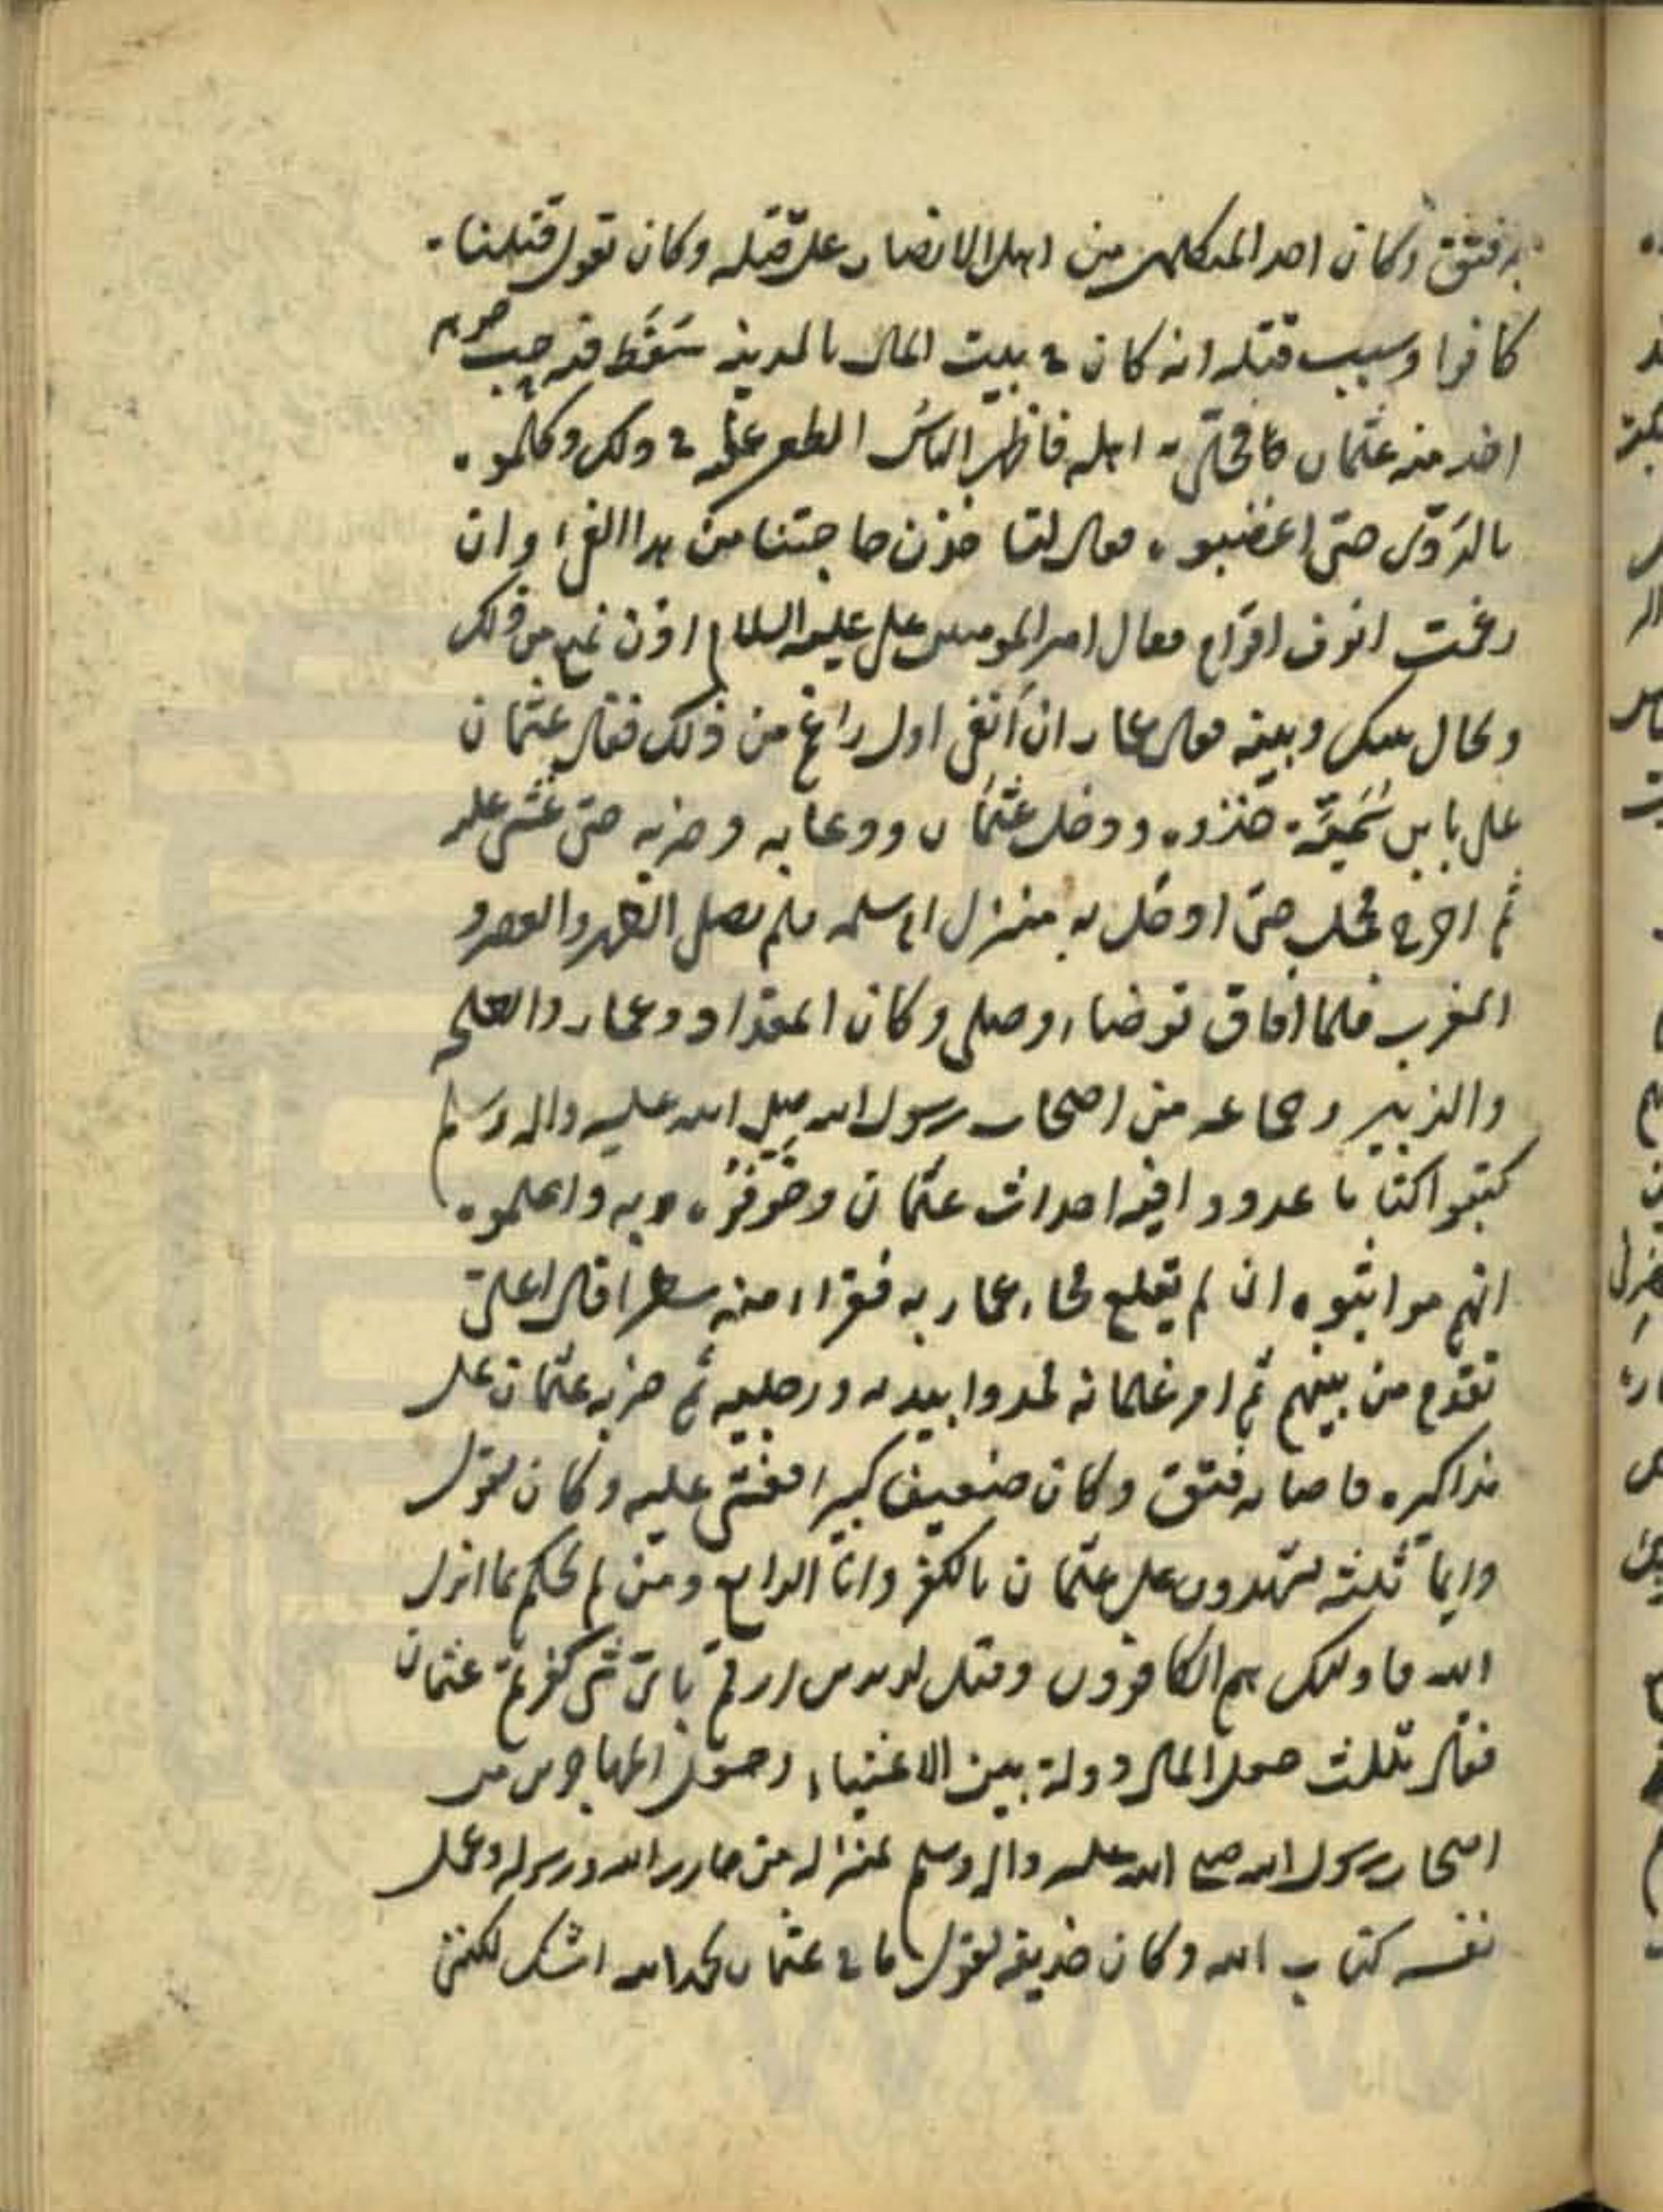 به فتق وكان احد المتكلمين من اهل الانصار على قتله وكان تقول قتلنا
كافرا وسبب قتله انه كان في بيت المال بالمدينه سَفَط فيه جوهر
اخذ منه عثمان ما فحلى به اهله فاظهر الناسُ الطعن عليه في ذلك وكلموه
بالرَدّى حتى اغضبوه فقال لنا خذن حاجتنا من هذا الفئ وان
رغمت انوف اقوام فقال امير المومنين على عليه السلام اذن تمنع من ذلك
ويحال بينك وبينه فقال عمار ان اَنفى اول راغم من ذلك فقال عثمان
على يا بن سُمَيّة خذوه ودخل عثمان ودعا به وضربه حتى غشى عليه
ثم اخرج فحمل حتى ادخل به منزل ام سلمه فلم يصل الظهر والعصر و
المغرب فلما افاق توضاء وصلى وكان المقداد وعمار والطلحه
والزبير وجماعه من اصحاب رسول الله صلى الله عليه واله وسلم
كتبوا كتابا عددوا فيه احداث عثمان وخوفوه به واعلموه
انهم مواثبوه ان لم يقلع فجاء عمار به فقراء منه سطرا قال اعلىّ
تقدم من بينهم ثم امر غلمانه فمدوا بيديه ورجليه ثم ضربه عثمان على
مذاكيره فاصابه فتق وكان ضعيفا كبيرا فغشى عليه وكان يقول
وايما ثلثه يشهدون على عثمان بالكفر وانا الرابع ومن لم يحكم بما انزل
الله فاولئك هم الكافرون وقيل لزيد بن ارقم باىّ شى كفرتم عثمان
فقال بثلث جعل المال دولة بين الاغنياء وجعل المهاجرين من
اصحاب رسول الله صلى الله عليه واله وسلم بمنزلة من حارب الله ورسوله وعمل
نفسه كتاب الله وكان حذيفه يقول ما في عثمان بحمد الله اشك لكننى